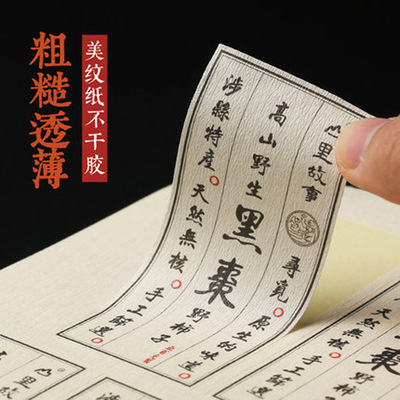 粗糙透薄
美纹纸不干胶
山里故事
尋覓 原生的味道
高山野生
黑棗
野柿子
涉縣特產
天然無核
手工篩選
山里故
棗
天然無核
手工篩選